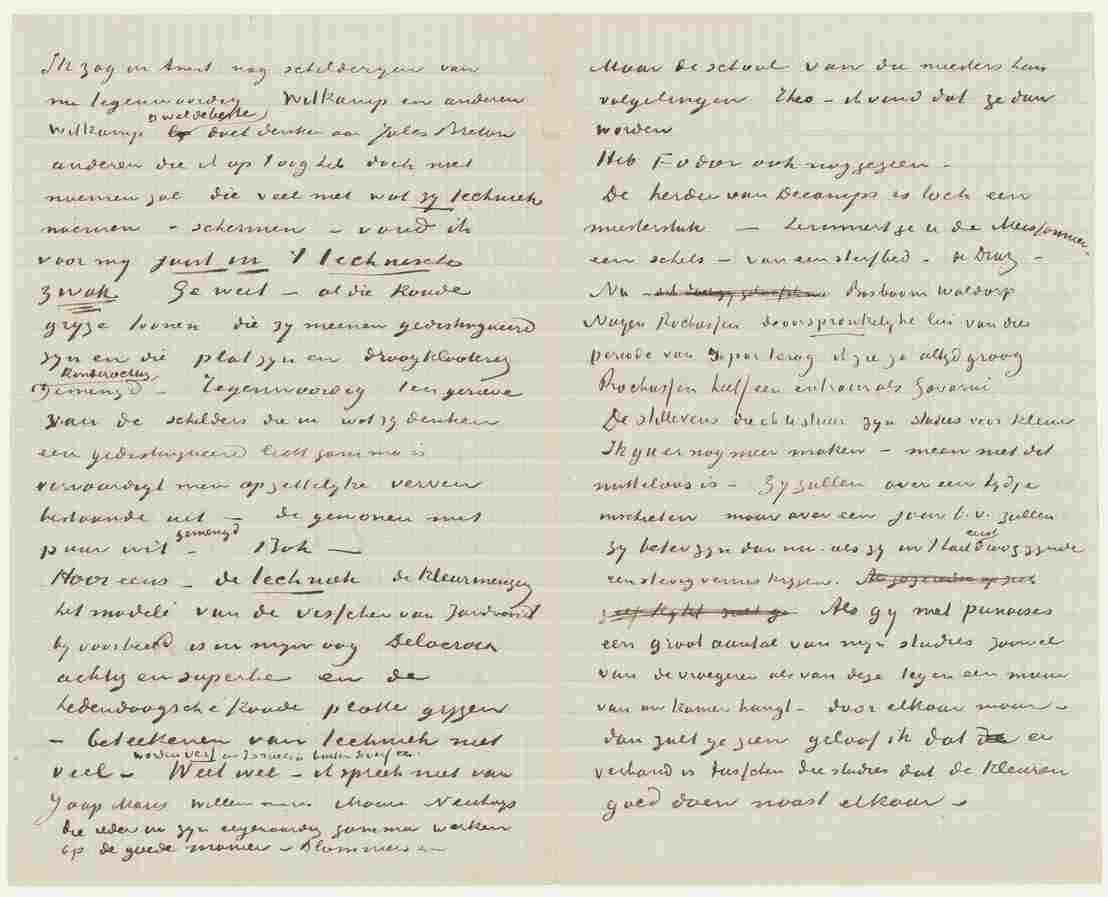 Ik zag in Amst nog schilderyen van
nu tegenwoordig Witkamp en anderen
Witkamp is wel de beste, doet denken aan Jules Breton
anderen die ik op t oog heb doch niet
noemen zal die veel met wat zy techniek
noemen – schermen – vond ik
voor my juist in 't technische
zwak Ge weet – al die koude
gryze toonen die zy meenen gedistingueerd
zyn en die plat zyn en
kinderachtig gemengd – Tegenwoordig ten gerieve
van de schilders die in wat zy denken
een gedistingueerd licht gamma is
vervaardigt men opzettelyke verven
bestaande uit – de gewonen met
puur wit gemengd – Bah –
Hoor eens – de techniek de kleurmenging
het modelé van de visscher van Zandvoort
by voorbeeld is in myn oog Delacroix
achtig en superbe en de
hedendaagsche koude platte gryzen
– beteekenen van techniek niet
veel – worden verf en Israels is buiten de verf
Weet wel – ik spreek niet van
Jaap Maris Willem Maris Mauve Neuhuys
die ieder in zyn eigenaardig gamma werken
op de goede manier – Blommers –
Maar de school van die meesters hun
volgelingen Theo – ik vind dat ze dun
worden
Heb Fodor ook nog gezien –
De herder van Decamps is toch een
meesterstuk – herinnert ge u die Meissonnier
een schets – van een sterfbed – de Diaz –
Nu – Bosboom Waldorp
Nuyen Rochussen de oorspronkelyke lui van die
periode van 40 jaar terug ik zie ze altyd graag
Rochussen heeft een entrain als Gavarni
De stillevens die ik u stuur zyn studies voor kleur
Ik zal er nog meer maken – meen niet dat
nutteloos is – Zy zullen over een tydje
inschieten maar over een jaar b.v. zullen
zy beter zyn dan nu. als zy in t hart droog zynde
eerst
een stevig vernis krygen.
Als gy met punaises
een groot aantal van myn studies zoowel
van de vroegeren als van deze tegen een muur
van uw kamer hangt – door elkaar maar –
dan zult ge zien geloof ik dat er
verband is tusschen die studies dat de kleuren
goed doen naast elkaar –